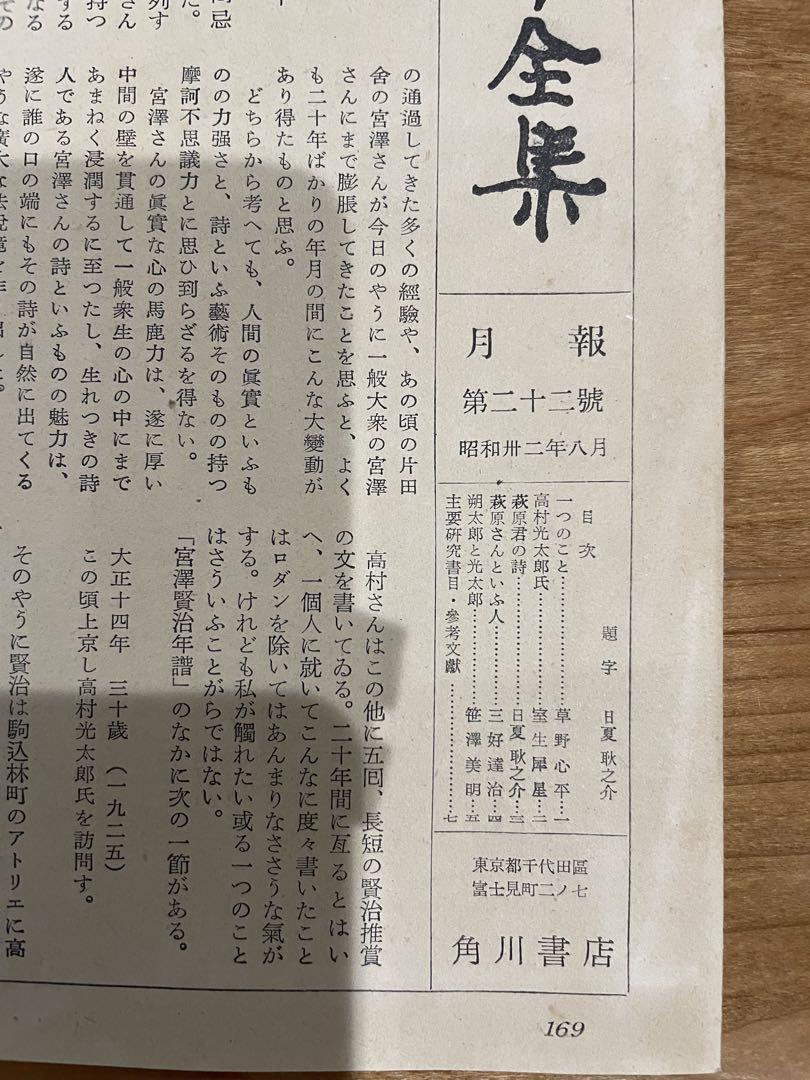 全集
月報
第二十二號
昭和卅二年八月
目次
題字 日夏耿之介
一つのこと…………草野心平…一
高村光太郎氏…………室生犀星…二
萩原君の詩…………日夏耿之介…三
萩原さんといふ人…………三好達治…四
朔太郎と光太郎…………笹澤美明…五
主要硏究書目・參考文獻…………七
東京都千代田區
富士見町二ノ七
角川書店
の通過してきた多くの經驗や、あの頃の片田
舍の宮澤さんが今日のやうに一般大衆の宮澤
さんにまで膨脹してきたことを思ふと、よく
も二十年ばかりの年月の間にこんな大變動が
あり得たものと思ふ。
どちらから考へても、人間の眞實といふも
のの力强さと、詩といふ藝術そのものの持つ
摩訶不思議力とに思ひ到らざるを得ない。
宮澤さんの眞實な心の馬鹿力は、遂に厚い
中間の壁を貫通して一般衆生の心の中にまで
あまねく浸潤するに至つたし、生れつきの詩
人である宮澤さんの詩といふものの魅力は、
遂に誰の口の端にもその詩が自然に出てくる
高村さんはこの他に五回、長短の賢治推賞
の文を書いてゐる。二十年間に亙るとはい
へ、一個人に就いてこんなに度々書いたこと
はロダンを除いてはあんまりなささうな氣が
する。けれども私が觸れたい或る一つのこと
はさういふことがらではない。
「宮澤賢治年譜」のなかに次の一節がある。
大正十四年 三十歲 (一九二五)
この頃上京し高村光太郎氏を訪問す。
そのやうに賢治は駒込林町のアトリエに高
169